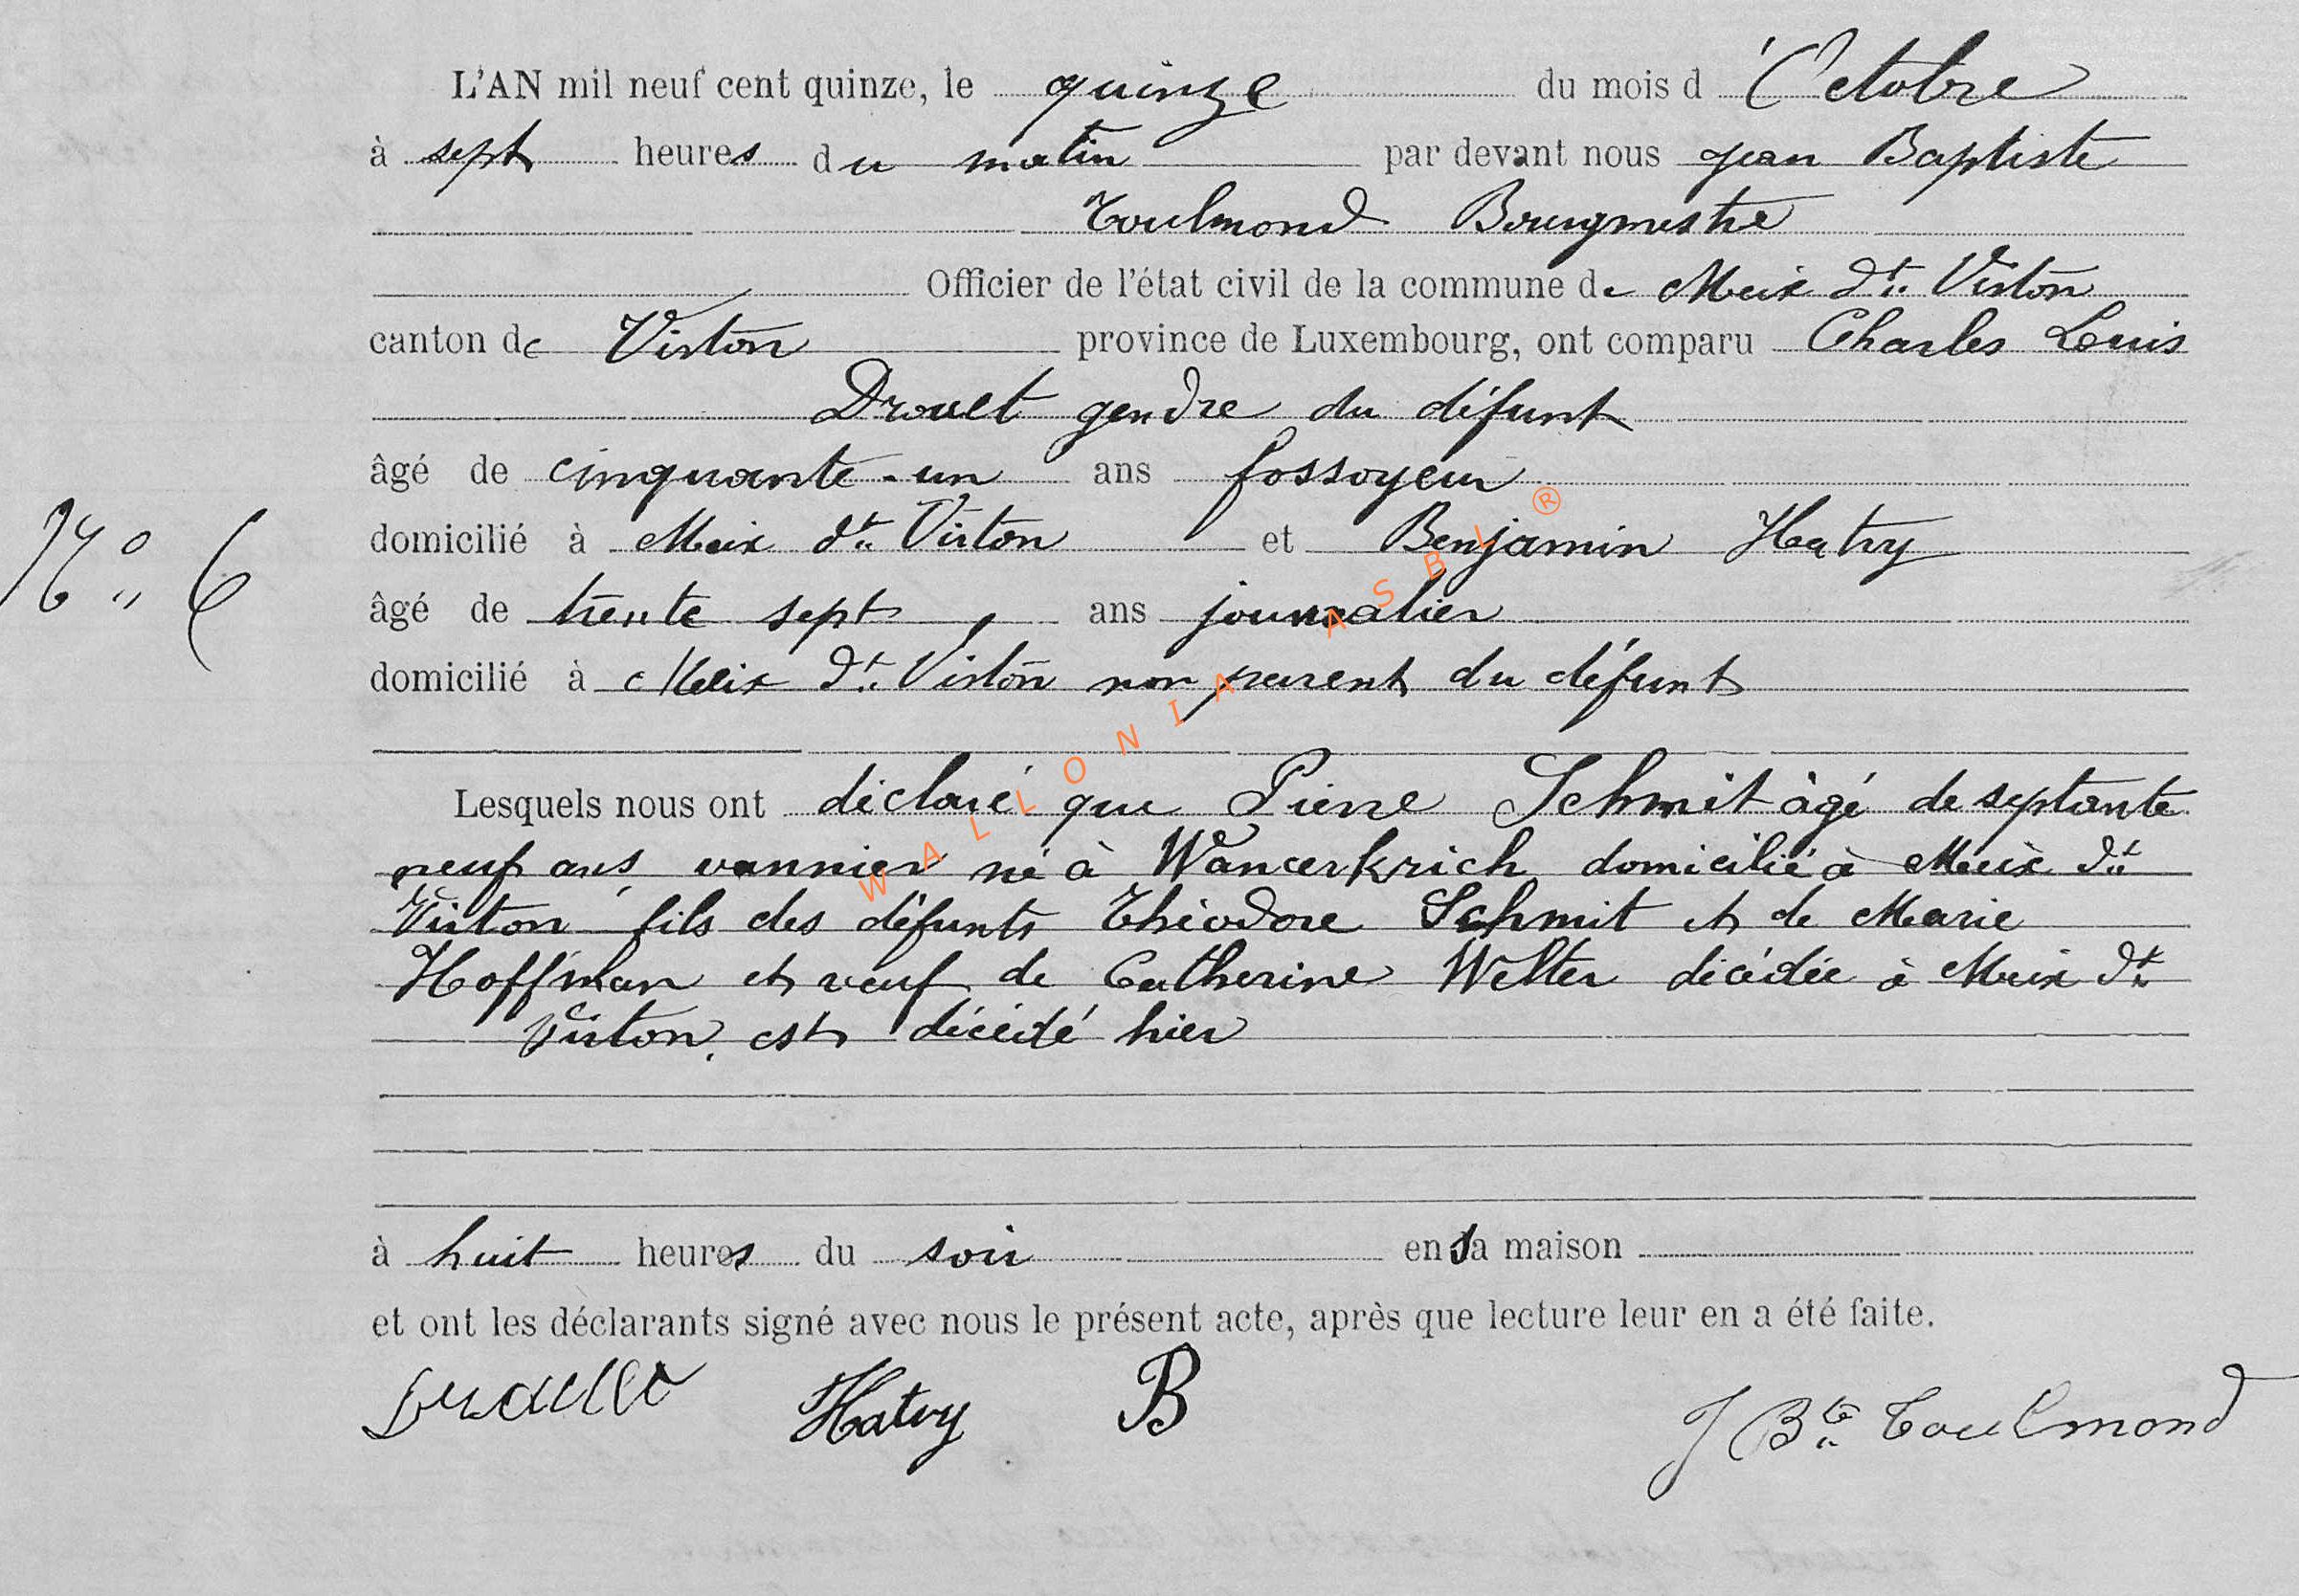 L'AN mil neuf cent quinze, le quinze du mois d'Octobre
à sept heures du matin par devant nous Jean Baptiste
Toulmond Bourgmestre
Officier de l'état civil de la commune de Meix dt. Virton
canton de Virton province de Luxembourg, ont comparu Charles Louis
Drouet gendre du défunt
âgé de cinquante-un ans fossoyeur
N° 6
domicilié à Meix dt. Virton et Benjamin Hatry
âgé de trente sept ans journalier
domicilié à Meix dt. Virton non parent du défunt
Lesquels nous ont déclaré que Pierre Schmit âgé de septante
neuf ans vannier né à Wancerkrich domicilié à Meix dt
Virton fils des défunts Théodore Schmit et de Marie
Hoffman et veuf de Catherine Welter décédée à Meix dt.
Virton, est décédé hier
à huit heures du soir en sa maison
et ont les déclarants signé avec nous le présent acte, après que lecture leur en a été faite.
Hatry B J Bte Toulmond
WALLONIA ASBL ®